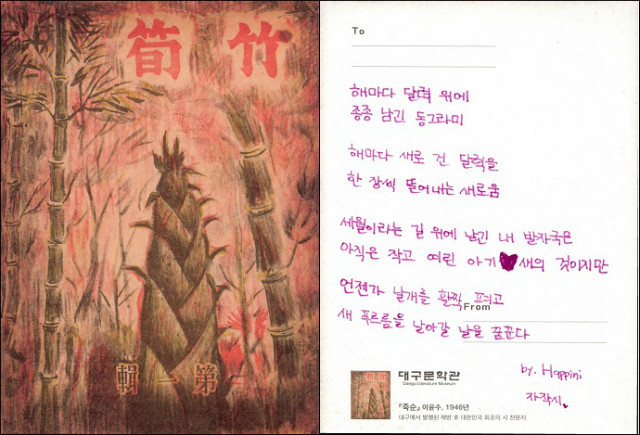 竹筍
第一輯
To
해마다 달력 위에
종종 남긴 동그라미
해마다 새로 건 달력을
한 장씩 뜯어내는 새로움
세월이라는 길 위에 남긴 내 발자국은
아직은 작고 여린 아기♥새의 것이지만
언젠가 날개를 활짝 펴고
From
새 푸르름을 날아갈 날을 꿈꾼다
by. Happini
자작시♥
대구문학관
Daegu Literature Museum
『죽순』 이윤수, 1946년
대구에서 발행된 해방 후 대한민국 최초의 시 전문지